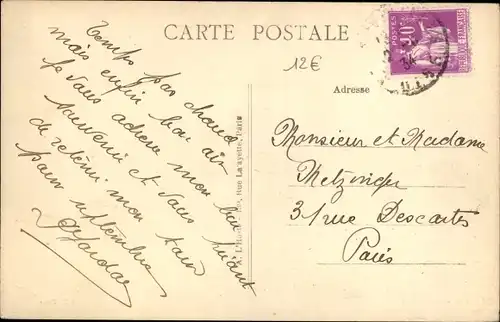 CARTE POSTALE
12€
Adresse
Temps pas chaud
mais enfin bon air
Je vous adresse mon bon
souvenir et vous
de retenir mon
pour septembre
Rue Lafayette, Paris
POSTES
40
RÉPUBLIQUE FRANÇAISE
34
Monsieur et Madame
Metzinger
31 rue Descartes
Paris